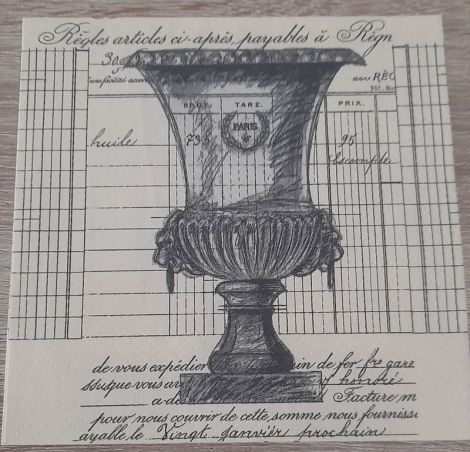 Règles articles ci-après, payables à Règn
30
une facilité accor
au RÈG
BRUT. TARE. PRIX.
PARIS
huile 735 95
Escompte
de vous expédier in de fer fre gare
ssusque vous av honoré
a des Facture, m
pour nous couvrir de cette somme nous fournisse
ayable, le Vingt Janviér prochain